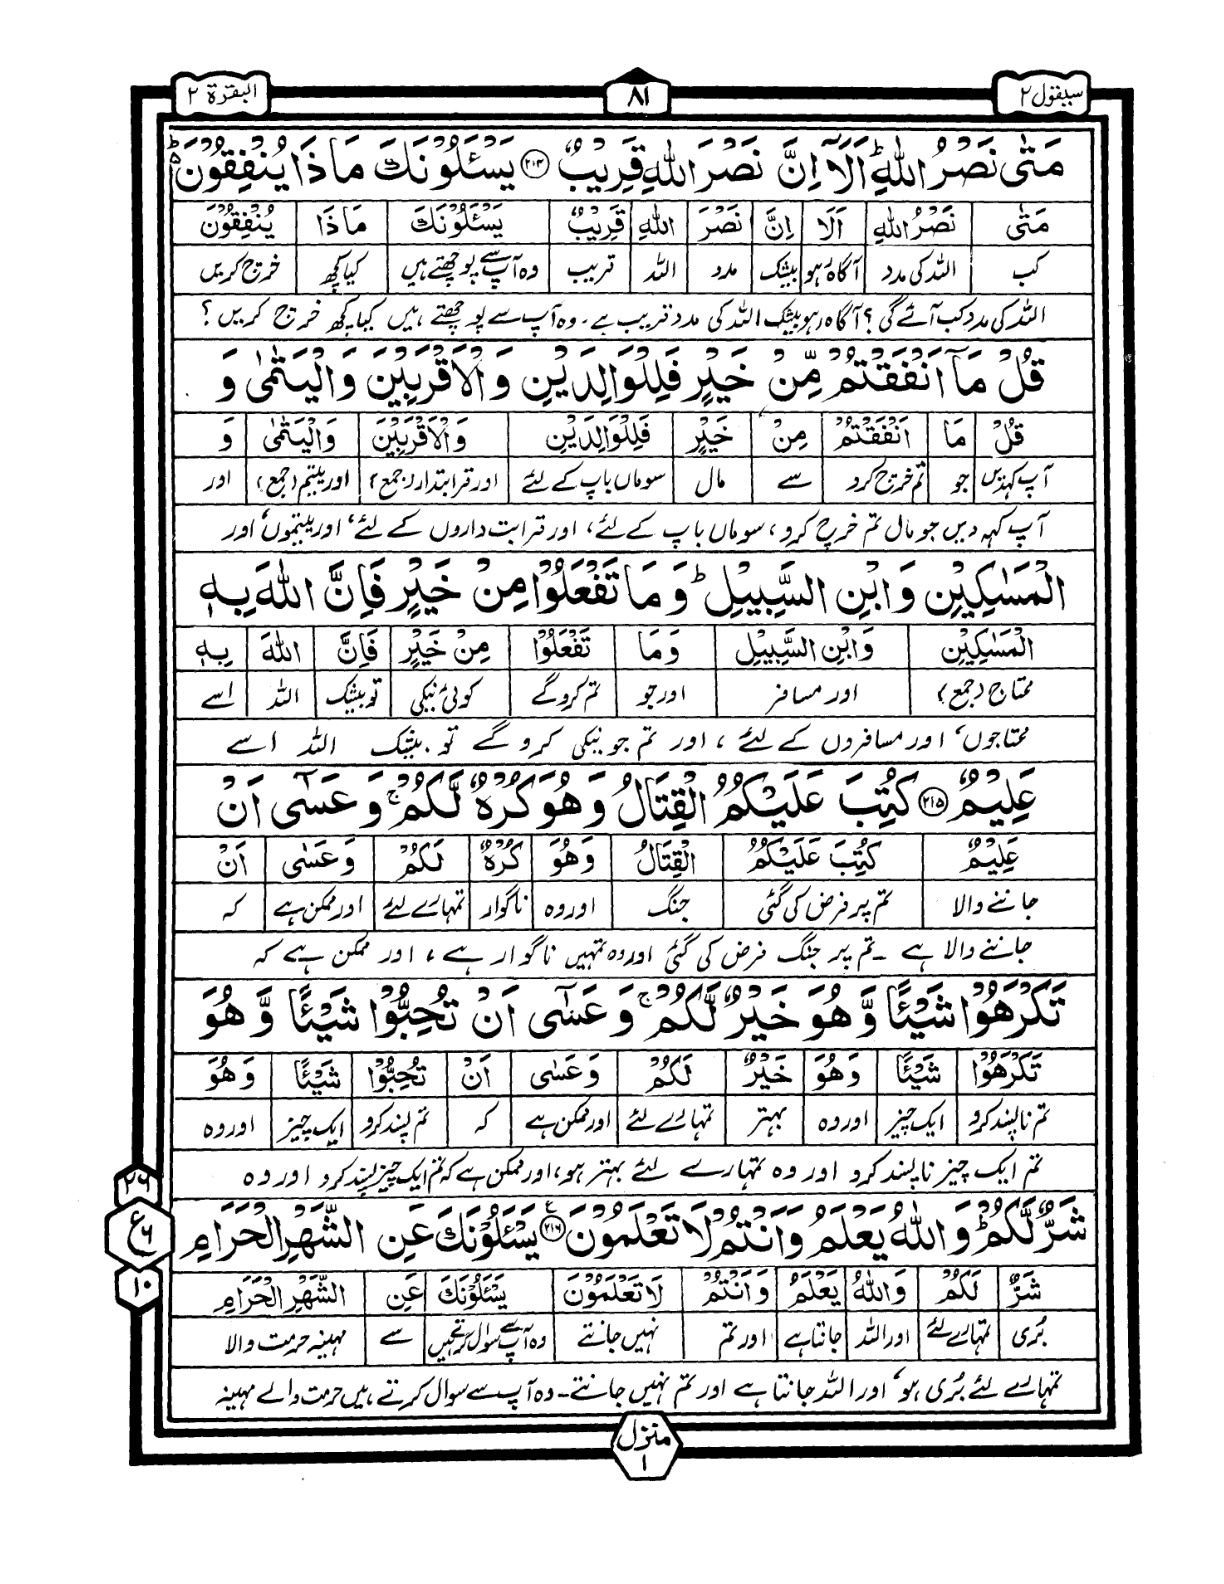 سیقول ۲
۸۱
البقرة ۲
مَتٰى نَصْرُ اللّٰهِ ؕ اَلَاۤ اِنَّ نَصْرَ اللّٰهِ قَرِیْبٌ ﴿۲۱۴﴾ یَسْـَٔلُوْنَكَ مَا ذَا یُنْفِقُوْنَ ؕ
مَتٰى نَصْرُ اللّٰهِ اَلَا اِنَّ نَصْرَ اللّٰهِ قَرِیْبٌ یَسْـَٔلُوْنَكَ مَاذَا یُنْفِقُوْنَ
کب اللہ کی مدد آگاہ رہو بیشک مدد اللہ قریب وہ آپ سے پوچھتے ہیں کیا کچھ خرچ کریں
اللہ کی مدد کب آئے گی ؟ آگاہ رہو بیشک اللہ کی مدد قریب ہے۔ وہ آپ سے پوچھتے ہیں کیا کچھ خرچ کریں ؟
قُلْ مَاۤ اَنْفَقْتُمْ مِّنْ خَیْرٍ فَلِلْوَالِدَیْنِ وَالْاَقْرَبِیْنَ وَالْیَتٰمٰى وَ
قُلْ مَا اَنْفَقْتُمْ مِنْ خَیْرٍ فَلِلْوَالِدَیْنِ وَالْاَقْرَبِیْنَ وَالْیَتٰمٰى وَ
آپ کہدیں جو تم خرچ کرو سے مال سو ماں باپ کے لئے اور قرابتدار (جمع) اور یتیم (جمع) اور
آپ کہہ دیں جو مال تم خرچ کرو، سو ماں باپ کے لئے، اور قرابت داروں کے لئے، اور یتیموں، اور
الْمَسٰكِیْنِ وَ ابْنِ السَّبِیْلِ ؕ وَ مَا تَفْعَلُوْا مِنْ خَیْرٍ فَاِنَّ اللّٰهَ بِهٖ
الْمَسٰكِیْنِ وَابْنِ السَّبِیْلِ وَمَا تَفْعَلُوْا مِنْ خَیْرٍ فَاِنَّ اللّٰهَ بِهٖ
محتاج (جمع) اور مسافر اور جو تم کرو گے کوئی نیکی تو بیشک اللہ اسے
محتاجوں، اور مسافروں کے لئے ، اور تم جو نیکی کرو گے تو بیشک اللہ اسے
عَلِیْمٌ ﴿۲۱۵﴾ كُتِبَ عَلَیْكُمُ الْقِتَالُ وَهُوَ كُرْهٌ لَّكُمْ ۚ وَ عَسٰۤى اَنْ
عَلِیْمٌ كُتِبَ عَلَیْكُمُ الْقِتَالُ وَهُوَ كُرْهٌ لَكُمْ وَعَسٰى اَنْ
جاننے والا تم پر فرض کی گئی جنگ اور وہ ناگوار تمہارے لئے اور ممکن ہے کہ
جاننے والا ہے ۔ تم پر جنگ فرض کی گئی اور وہ تمہیں ناگوار ہے ، اور ممکن ہے کہ
تَكْرَهُوْا شَیْـًٔا وَّ هُوَ خَیْرٌ لَّكُمْ ۚ وَ عَسٰۤى اَنْ تُحِبُّوْا شَیْـًٔا وَّ هُوَ
تَكْرَهُوْا شَیْـًٔا وَّهُوَ خَیْرٌ لَكُمْ وَعَسٰى اَنْ تُحِبُّوْا شَیْـًٔا وَّهُوَ
تم ناپسند کرو ایک چیز اور وہ بہتر تمہارے لئے اور ممکن ہے کہ تم پسند کرو ایک چیز اور وہ
تم ایک چیز ناپسند کرو اور وہ تمہارے لئے بہتر ہو، اور ممکن ہے کہ تم ایک چیز پسند کرو اور وہ
شَرٌّ لَّكُمْ ؕ وَ اللّٰهُ یَعْلَمُ وَ اَنْتُمْ لَا تَعْلَمُوْنَ ﴿۲۱۶﴾ یَسْـَٔلُوْنَكَ عَنِ الشَّهْرِ الْحَرَامِ
شَرٌّ لَكُمْ وَاللّٰهُ یَعْلَمُ وَاَنْتُمْ لَا تَعْلَمُوْنَ یَسْـَٔلُوْنَكَ عَنِ الشَّهْرِ الْحَرَامِ
بُری تمہارے لئے اور اللہ جانتا ہے اور تم نہیں جانتے وہ آپ سے سوال کرتے ہیں سے مہینہ حرمت والا
تمہارے لئے بُری ہو، اور اللہ جانتا ہے اور تم نہیں جانتے۔ وہ آپ سے سوال کرتے ہیں حرمت والے مہینہ
۲۶
ع ۶
۱۰
منزل
۱